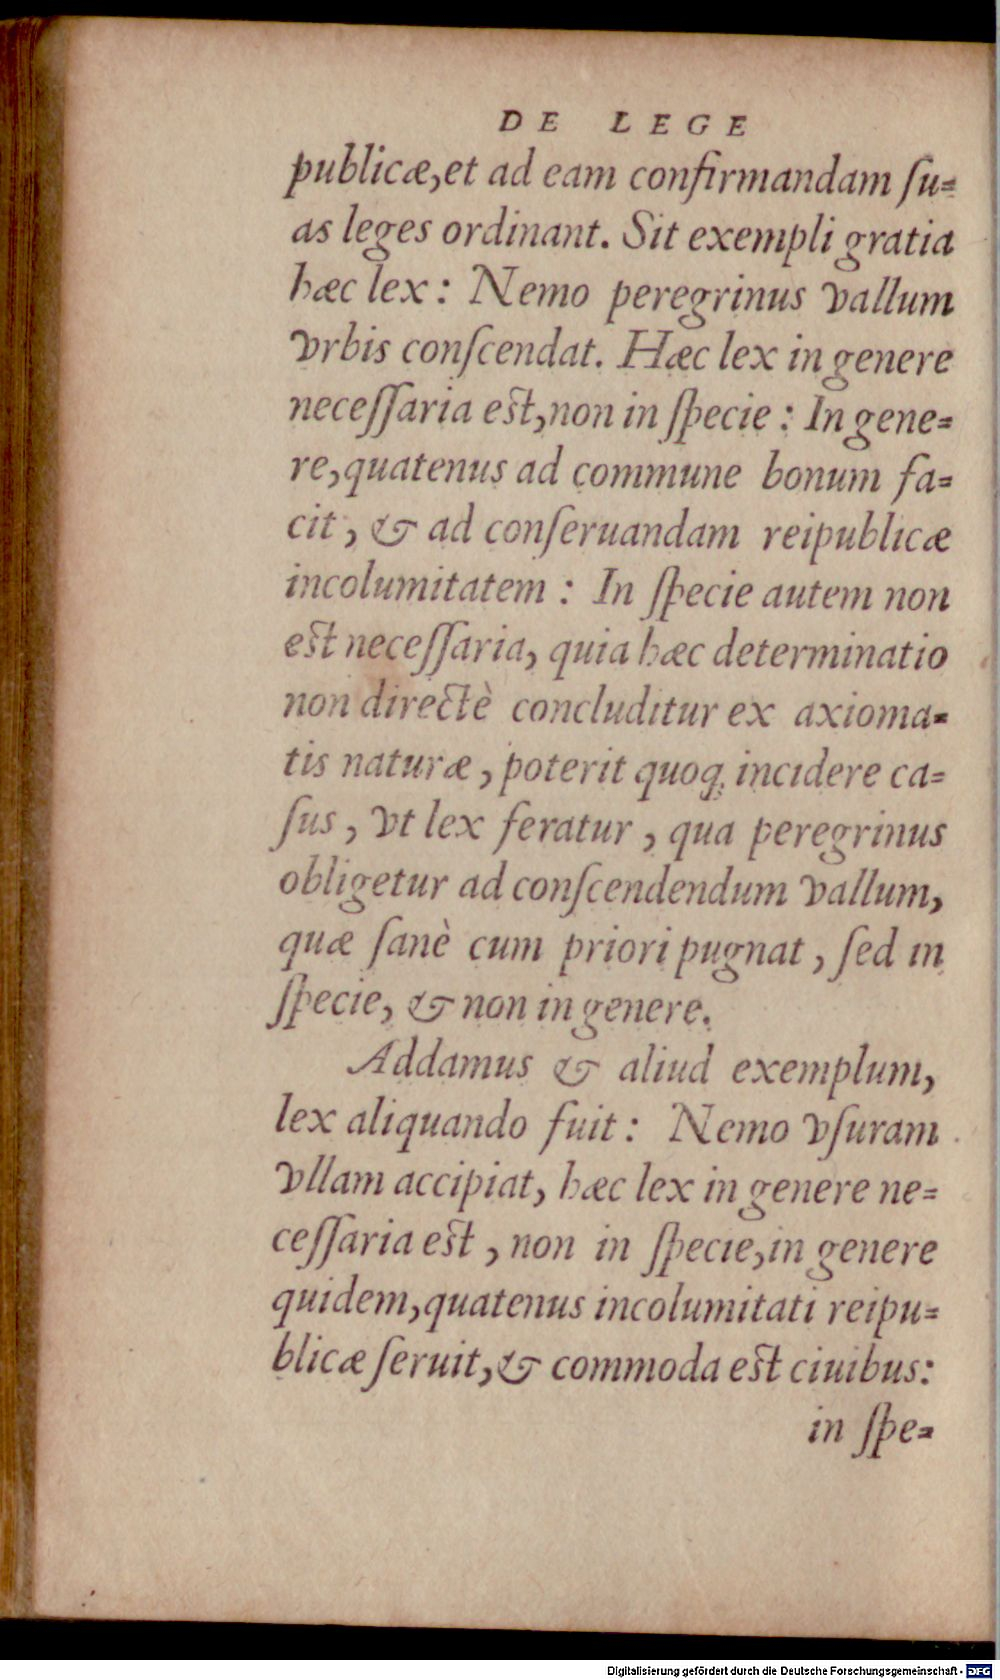 DE LEGE
publicæ, et ad eam confirmandam ſu=
as leges ordinant. Sit exempli gratia
hæc lex: Nemo peregrinus vallum
vrbis conſcendat. Hæc lex in genere
neceſſaria est, non in ſpecie: In gene=
re, quatenus ad commune bonum fa=
cit, & ad conſeruandam reipublicæ
incolumitatem: In ſpecie autem non
est neceſſaria, quia hæc determinatio
non directè concluditur ex axioma=
tis naturæ, poterit quoq; incidere ca=
ſus, vt lex feratur, qua peregrinus
obligetur ad conſcendendum vallum,
quæ ſanè cum priori pugnat, ſed in
ſpecie, & non in genere.
Addamus & aliud exemplum,
lex aliquando fuit: Nemo vſuram
vllam accipiat, hæc lex in genere ne=
ceſſaria est, non in ſpecie, in genere
quidem, quatenus incolumitati reipu=
blicæ ſeruit, & commoda est ciuibus:
in ſpe=
Digitalisierung gefördert durch die Deutsche Forschungsgemeinschaft - DFG